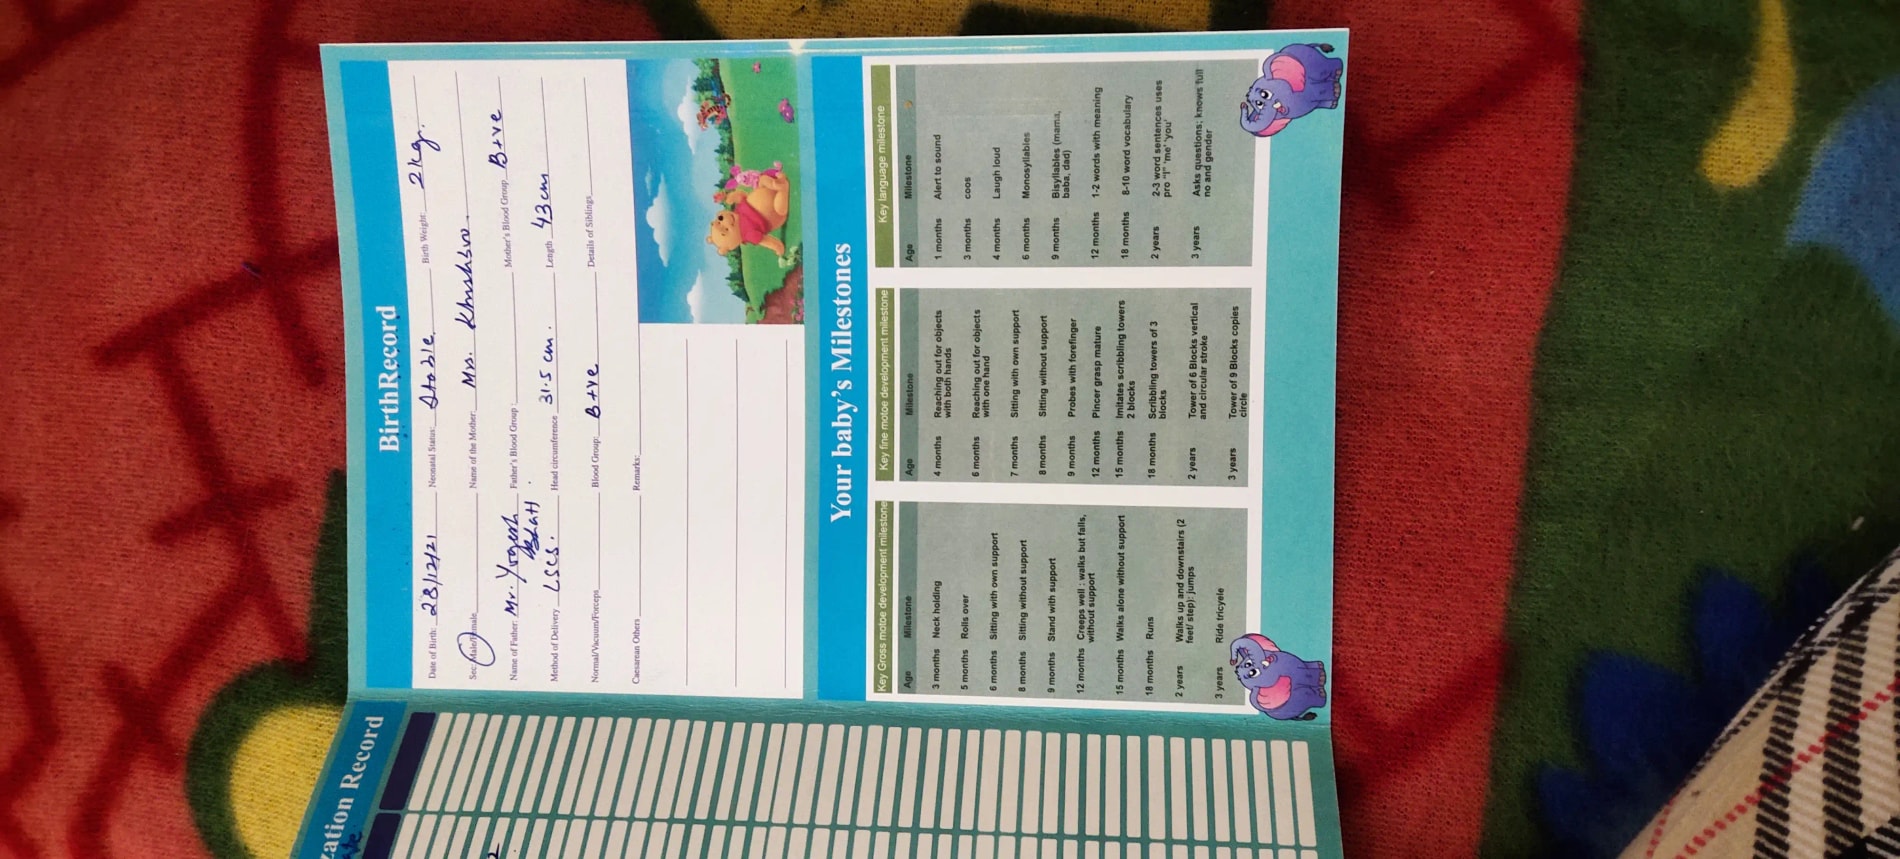 BirthRecord
Date of Birth: 28/12/21 Neonatal Status: Stable Birth Weight: 2 kg.
Sec: Male/Female Name of the Mother: Mrs. Khushboo
Name of Father: Mr. Yogesh Bhatt Father's Blood Group : Mother's Blood Group B+ve
Method of Delivery LSCS. Head circumference 31.5 cm. Length 43cm
Normal/Vacuum/Forceps Blood Group: B+ve Details of Siblings
Caesarean Others Remarks:
Your baby's Milestones
Key Gross motoe development milestone
Age Milestone
3 months Neck holding
5 months Rolls over
6 months Sitting with own support
8 months Sitting without support
9 months Stand with support
12 months Creeps well : walks but falls,
without support
15 months Walks alone without support
18 months Runs
2 years Walks up and downstairs (2
feet/ step): jumps
3 years Ride tricycle
Key fine motoe development milestone
Age Milestone
4 months Reaching out for objects
with both hands
6 months Reaching out for objects
with one hand
7 months Sitting with own support
8 months Sitting without support
9 months Probes with forefinger
12 months Pincer grasp mature
15 months Imitates scribbling towers
2 blocks
18 months Scribbling towers of 3
blocks
2 years Tower of 6 Blocks vertical
and circular stroke
3 years Tower of 9 Blocks copies
circle
Key language milestone
Age Milestone
1 months Alert to sound
3 months coos
4 months Laugh loud
6 months Monosyllables
9 months Bisyllables (mama,
baba, dad)
12 months 1-2 words with meaning
18 months 8-10 word vocabulary
2 years 2-3 word sentences uses
pro "I" 'me' 'you'
3 years Asks questions; knows full
no and gender
zation Record